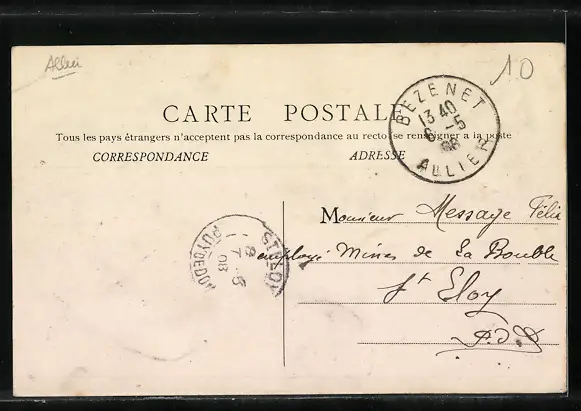 Allier
10
CARTE POSTALE
Tous les pays étrangers n'acceptent pas la correspondance au recto, se renseigner a la poste
CORRESPONDANCE
ADRESSE
BEZENET
13 40
6 -5
08
ALLIER
Monsieur Message Félix
employé Mines de La Bouble
St Eloy
P.d.D
ST ELOY
7 -5
08
PUY DE DOME